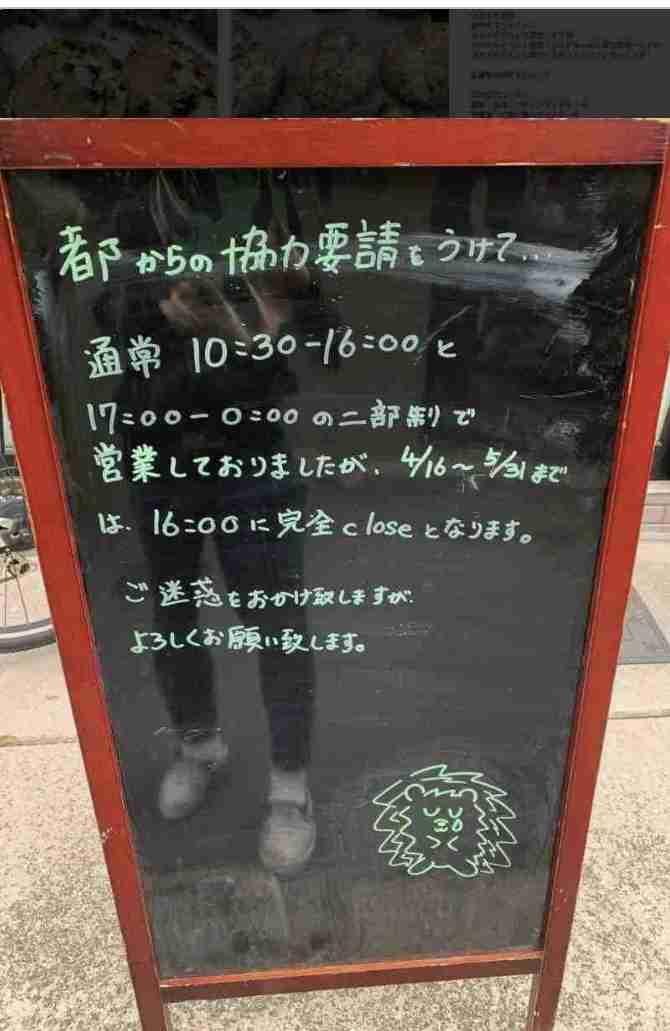 都からの協力要請をうけて...
通常 10:30-16:00と
17:00-0:00の二部制で
営業しておりましたが、4/16〜5/31まで
は、16:00に完全closeとなります。
ご迷惑をおかけ致しますが、
よろしくお願い致します。